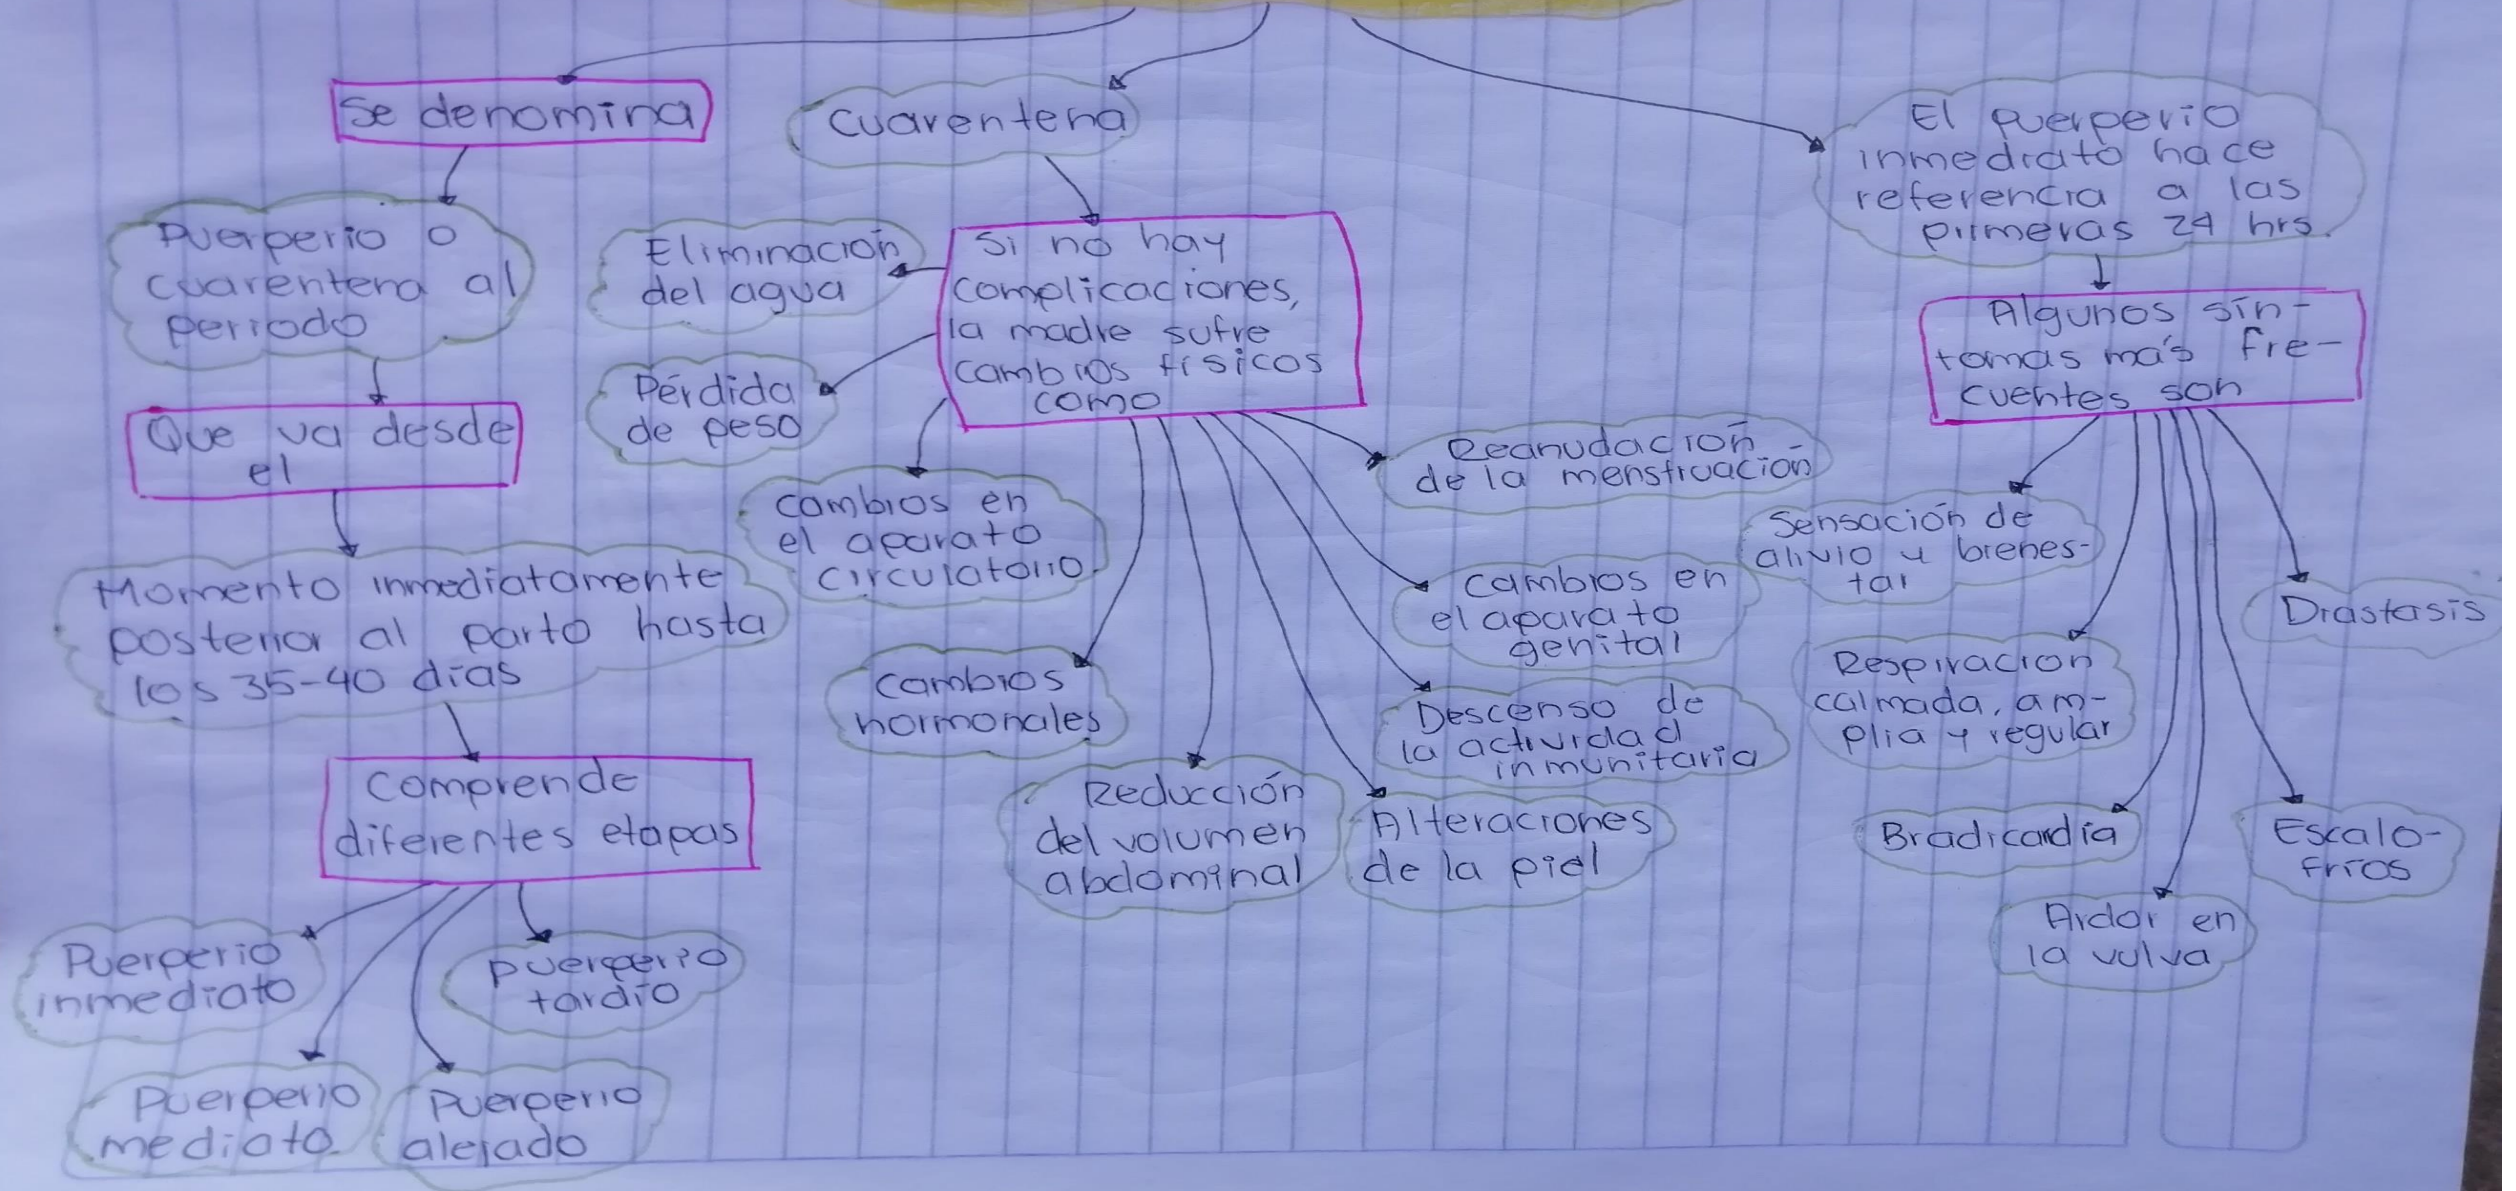 Se denomina
Puerperio o
cuarentena al
periodo
Que va desde
el
Momento inmediatamente
posterior al parto hasta
los 35-40 días
Comprende
diferentes etapas
Puerperio
inmediato
Puerperio
mediato
Puerperio
alejado
Puerperio
tardío
Cuarentena
Si no hay
complicaciones,
la madre sufre
cambios físicos
como
Eliminación
del agua
Pérdida
de peso
Cambios en
el aparato
circulatorio
Cambios
hormonales
Reducción
del volumen
abdominal
Alteraciones
de la piel
Descenso de
la actividad
inmunitaria
Cambios en
el aparato
genital
Reanudación
de la menstruación
El puerperio
inmediato hace
referencia a las
primeras 24 hrs.
Algunos sín-
tomas más fre-
cuentes son
Sensación de
alivio y bienes-
tar
Respiración
calmada, am-
plia y regular
Bradicardia
Ardor en
la vulva
Escalo-
fríos
Diastasis